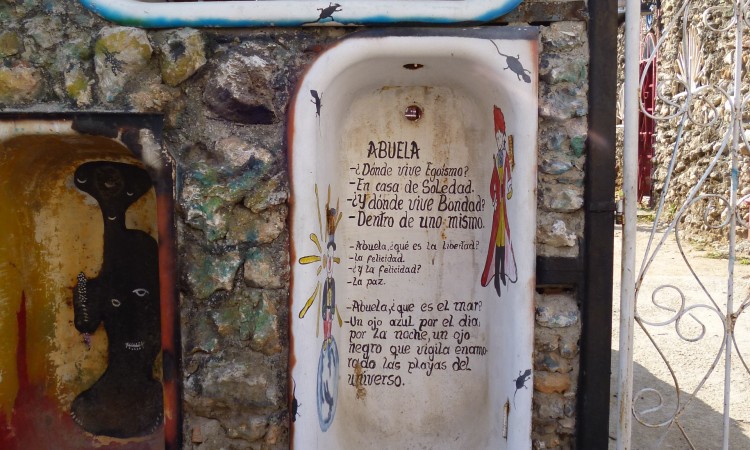 ABUELA
-¿Dónde vive Egoísmo?
-En casa de Soledad.
-¿Y dónde vive Bondad?
-Dentro de uno mismo.
-Abuela,¿qué es la libertad?
-La felicidad.
-¿Y la felicidad?
-La paz.
Abuela,¿que es el mar?
Un ojo azul por el dia,
por la noche, un ojo
negro que vigila enamo-
rado las playas del
universo.